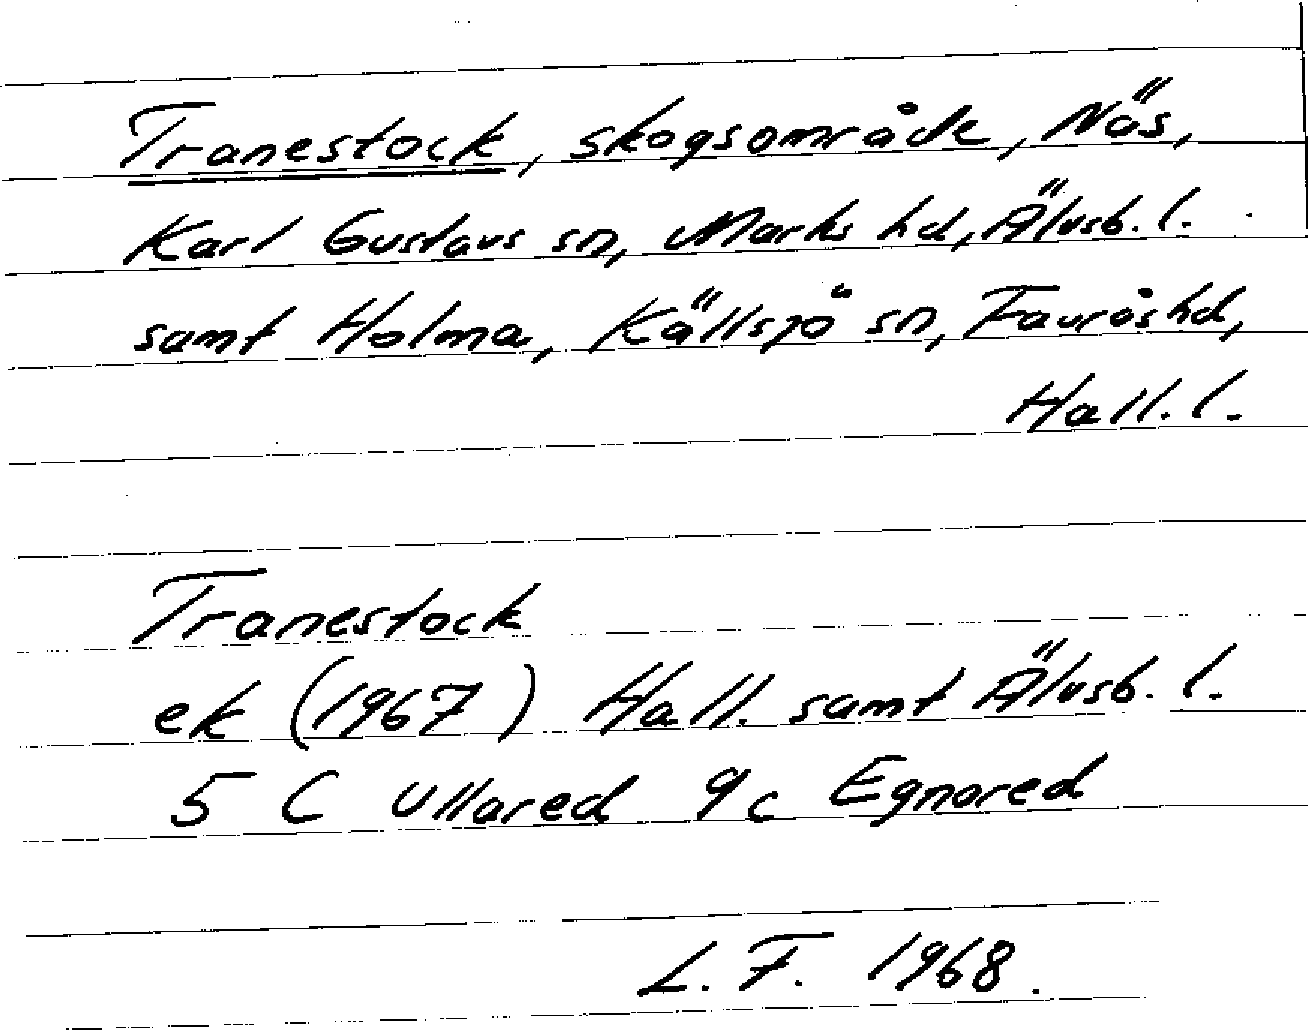 Tranestock, skogsområde, Näs,
Karl Gustavs sn, Marks hd, Älvsb. l.
samt Holma, Källsjö sn, Faurås hd,
Hall. l.
Tranestock
ek (1967) Hall. samt Älvsb. l.
5 C Ullared 9c Egnared
L. F. 1968.